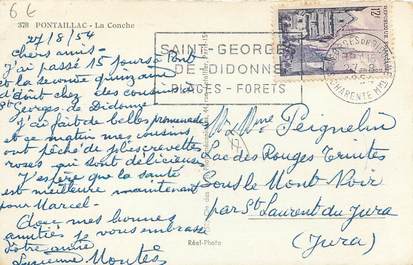 6€
378 PONTAILLAC - La Conche
27/8/54
Chers amis -
J'ai passé 15 jours à Pont
et la seconde quinzaine
d'août chez des cousins à
St Georges de Didonne
J'ai fait de belles promenades
et ce matin mes cousins
ont pêché de jolies crevettes
roses qui sont délicieuses
J'espère que la santé
est meilleure maintenant
pour Marcel -
Avec mes bonnes
amitiés je vous embrasse
Votre amie
Lucienne Montès
SAINT-GEORGES
DE DIDONNE
PLAGES - FORETS
12F
CHARENTE MME
M. Mme Peignelin
Lac des Rouges Truites
Sous le Mont Noir
par St Laurent du Jura
(Jura)
Réel-Photo